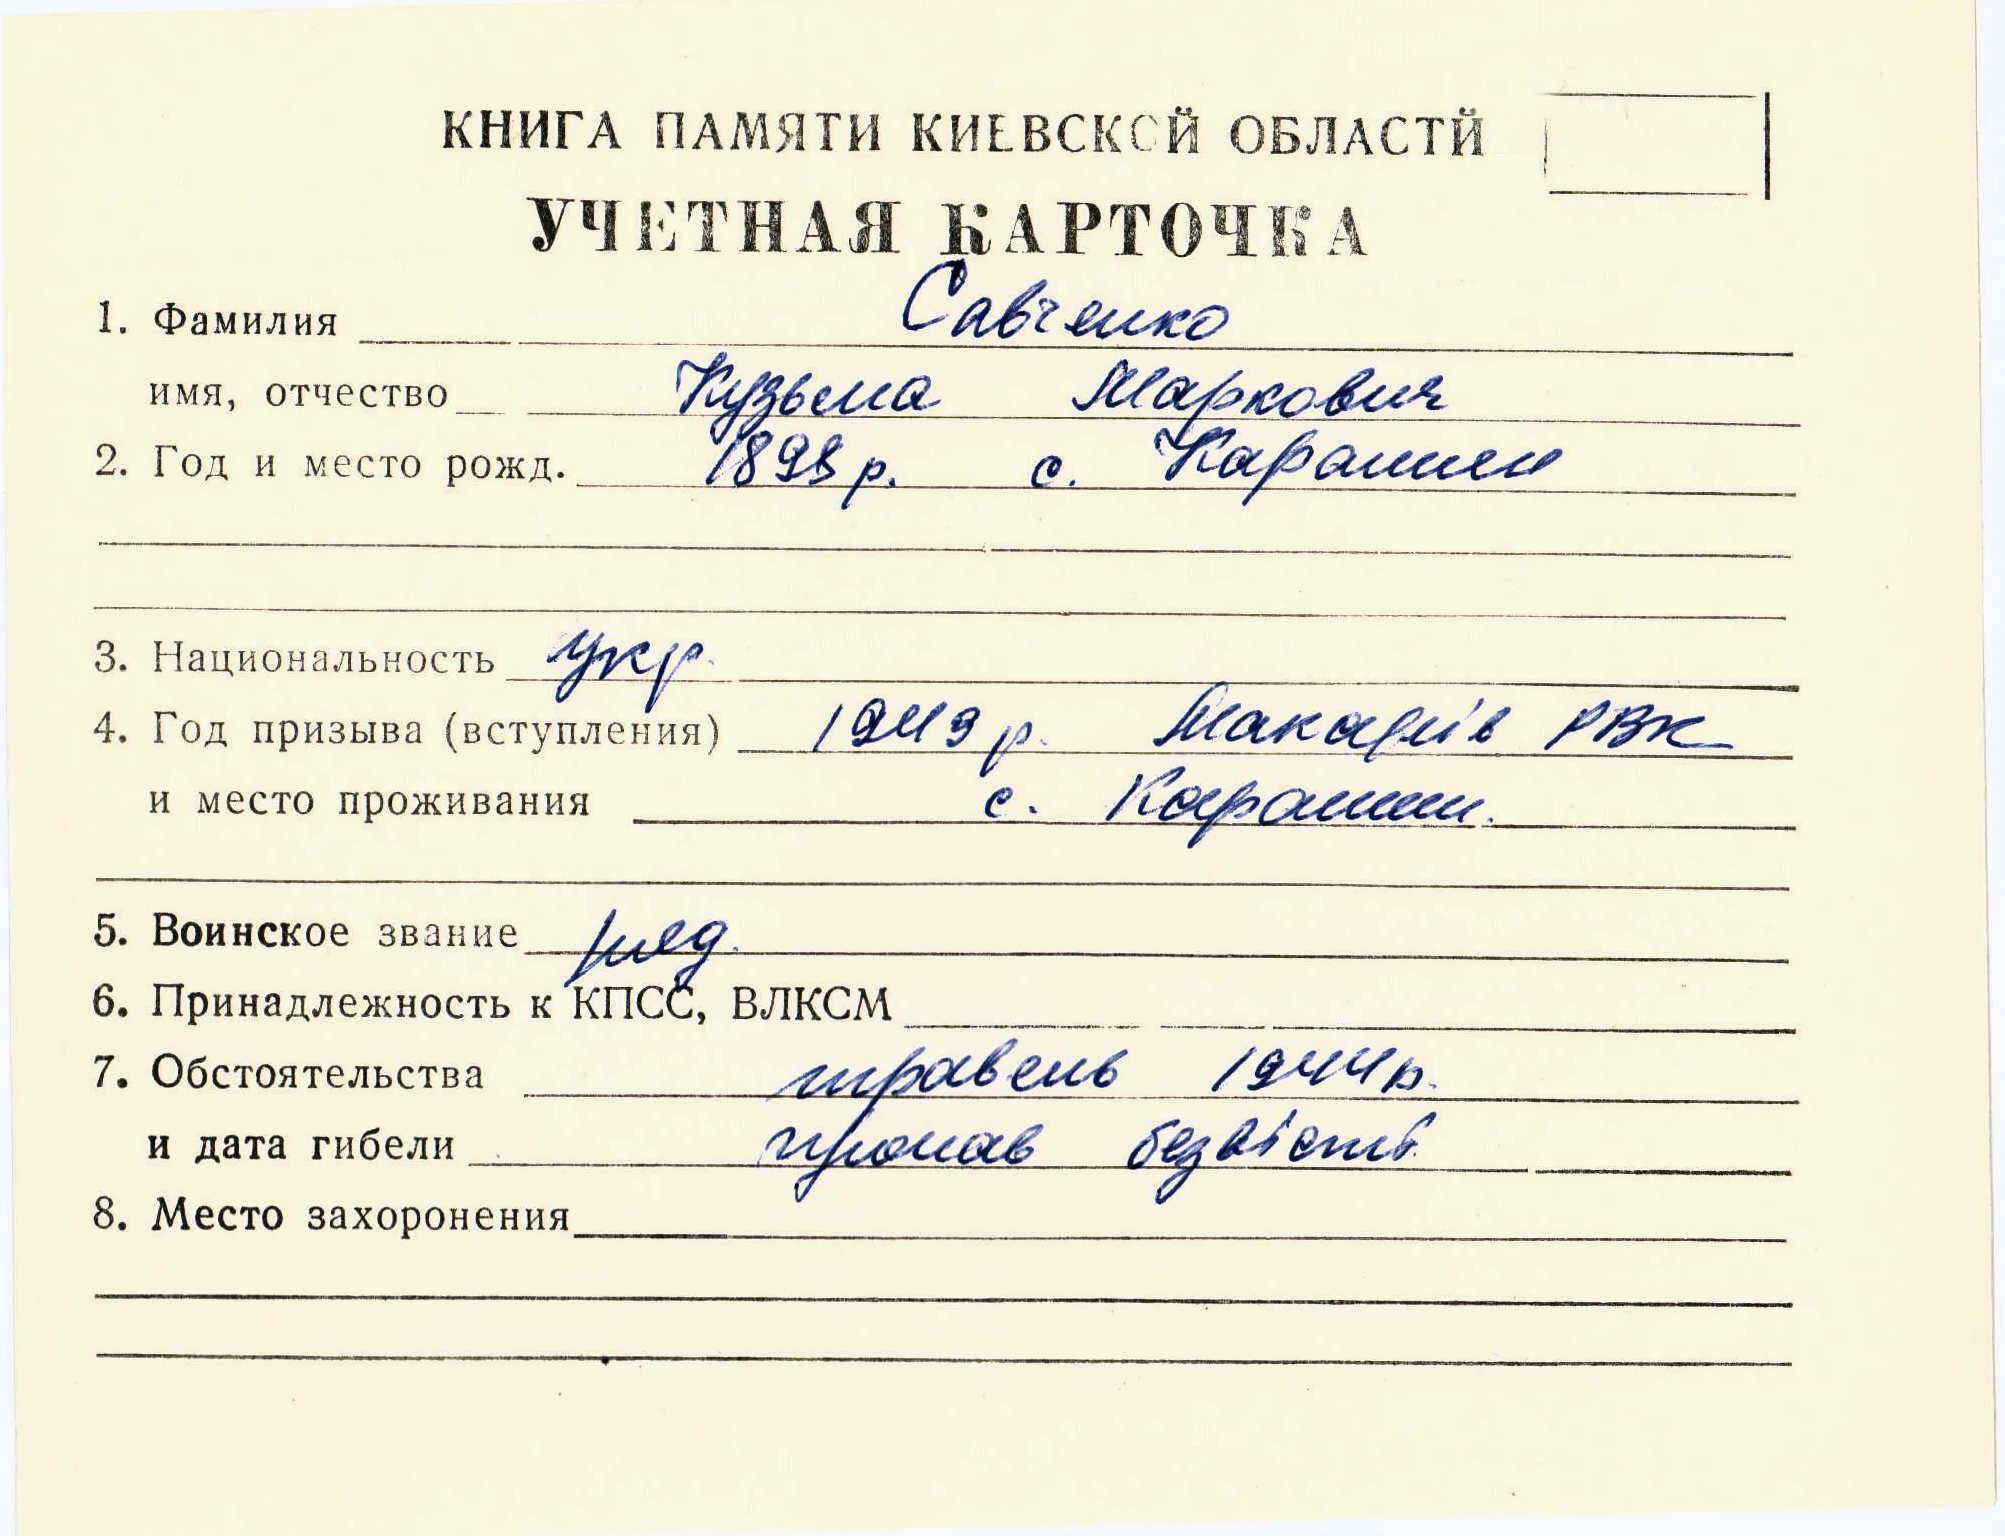 КНИГА ПАМЯТИ КИЕВСКОЙ ОБЛАСТЙ
УЧЕТНАЯ КАРТОЧКА
1. Фамилия Савченко
имя, отчество Кузьма Маркович
2. Год и место рожд. 1893 р. с. Карашин
3. Национальность укр.
4. Год призыва (вступления) 1943 р. Макарів РВК
и место проживания с. Карашин.
5. Воинское звание ряд.
6. Принадлежность к КПСС, ВЛКСМ
7. Обстоятельства травень 1944 р.
и дата гибели пропав безвісті.
8. Место захоронения